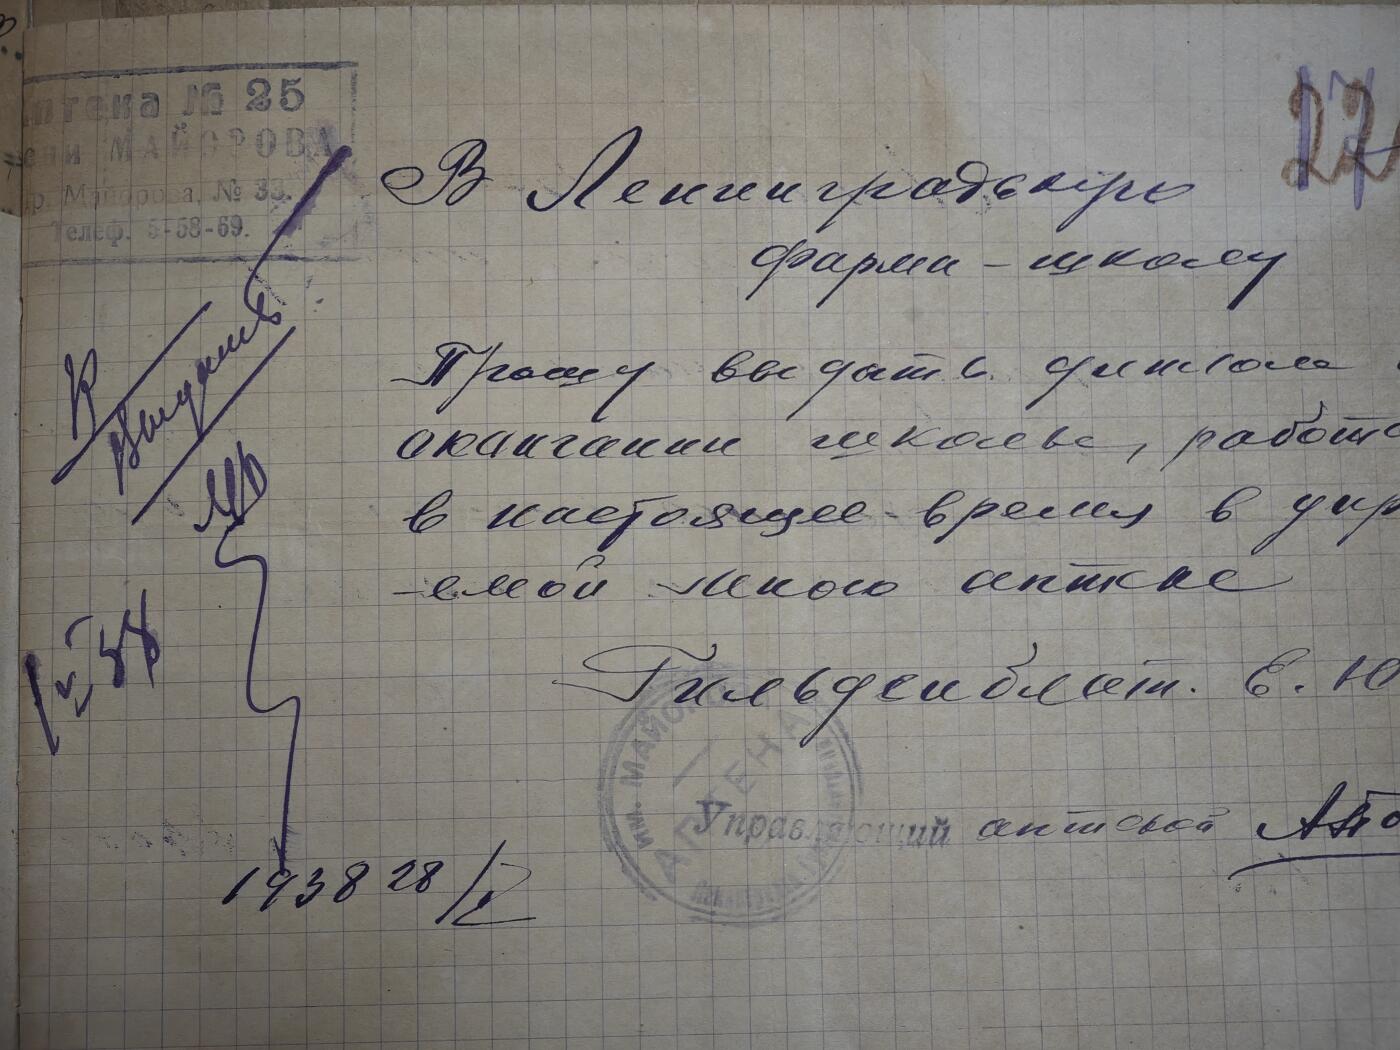 Аптека № 25
имени МАЙОРОВА
пр. Майорова, № 33.
Телеф. 5-58-69.
27
В Ленинградскую
фарма-школу
Прошу выдать диплом
окончании школы, работ
в настоящее-время в упр
-емой мною аптке
Гильденблат. Е. Ю
Управляющий аптекой
ИМ. МАЙОРОВА
АПТЕКА
К
выдаче
1938 28/V